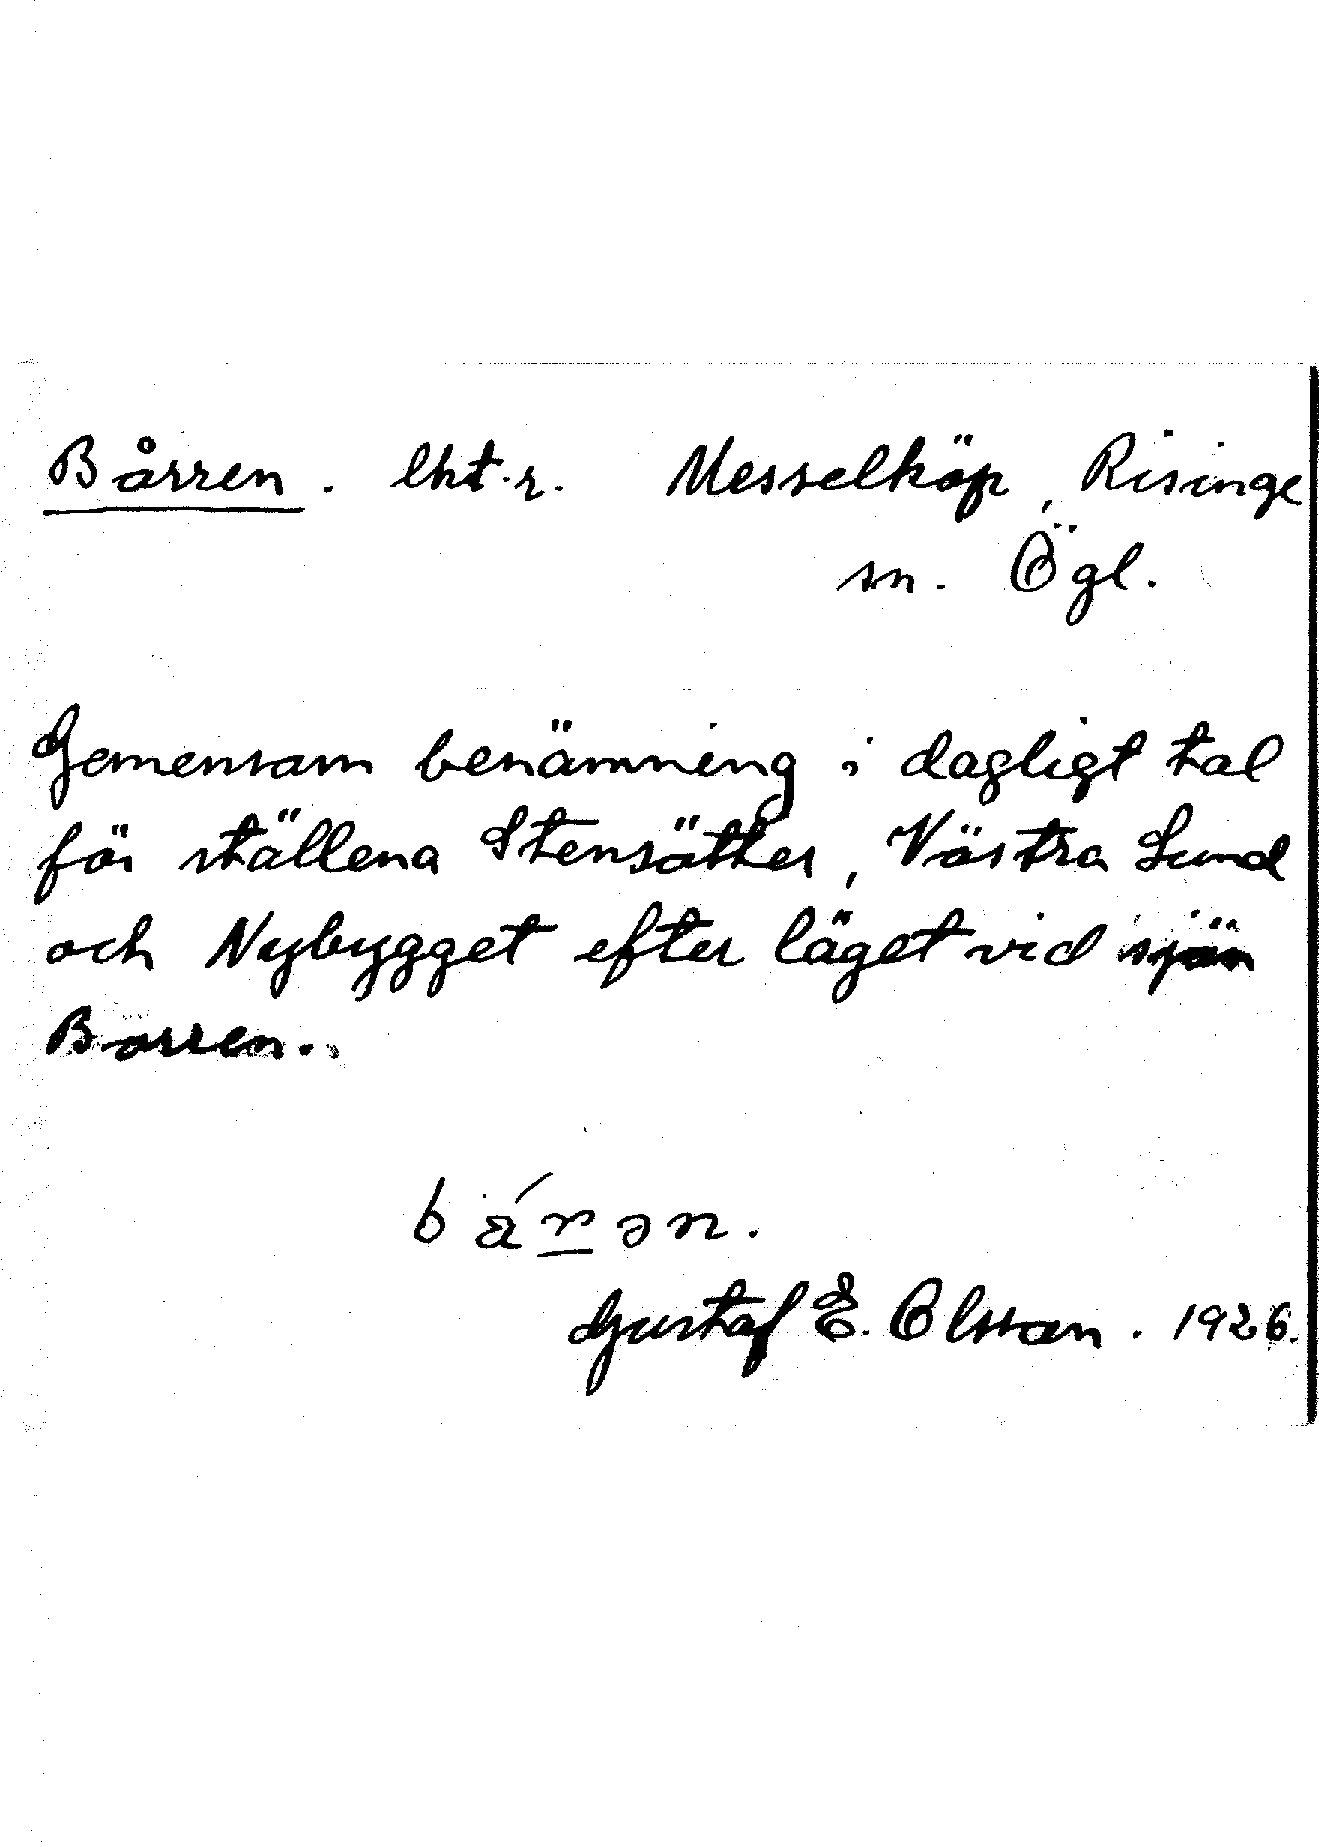 Bårren. lht.r. Messelköp, Risinge
sn. Ögl.
Gemensam benämning i dagligt tal
för ställena Stensätter, Västra Lund
och Nybygget efter läget vid sjön
Borren.
Gustaf E. Olsson. 1926.